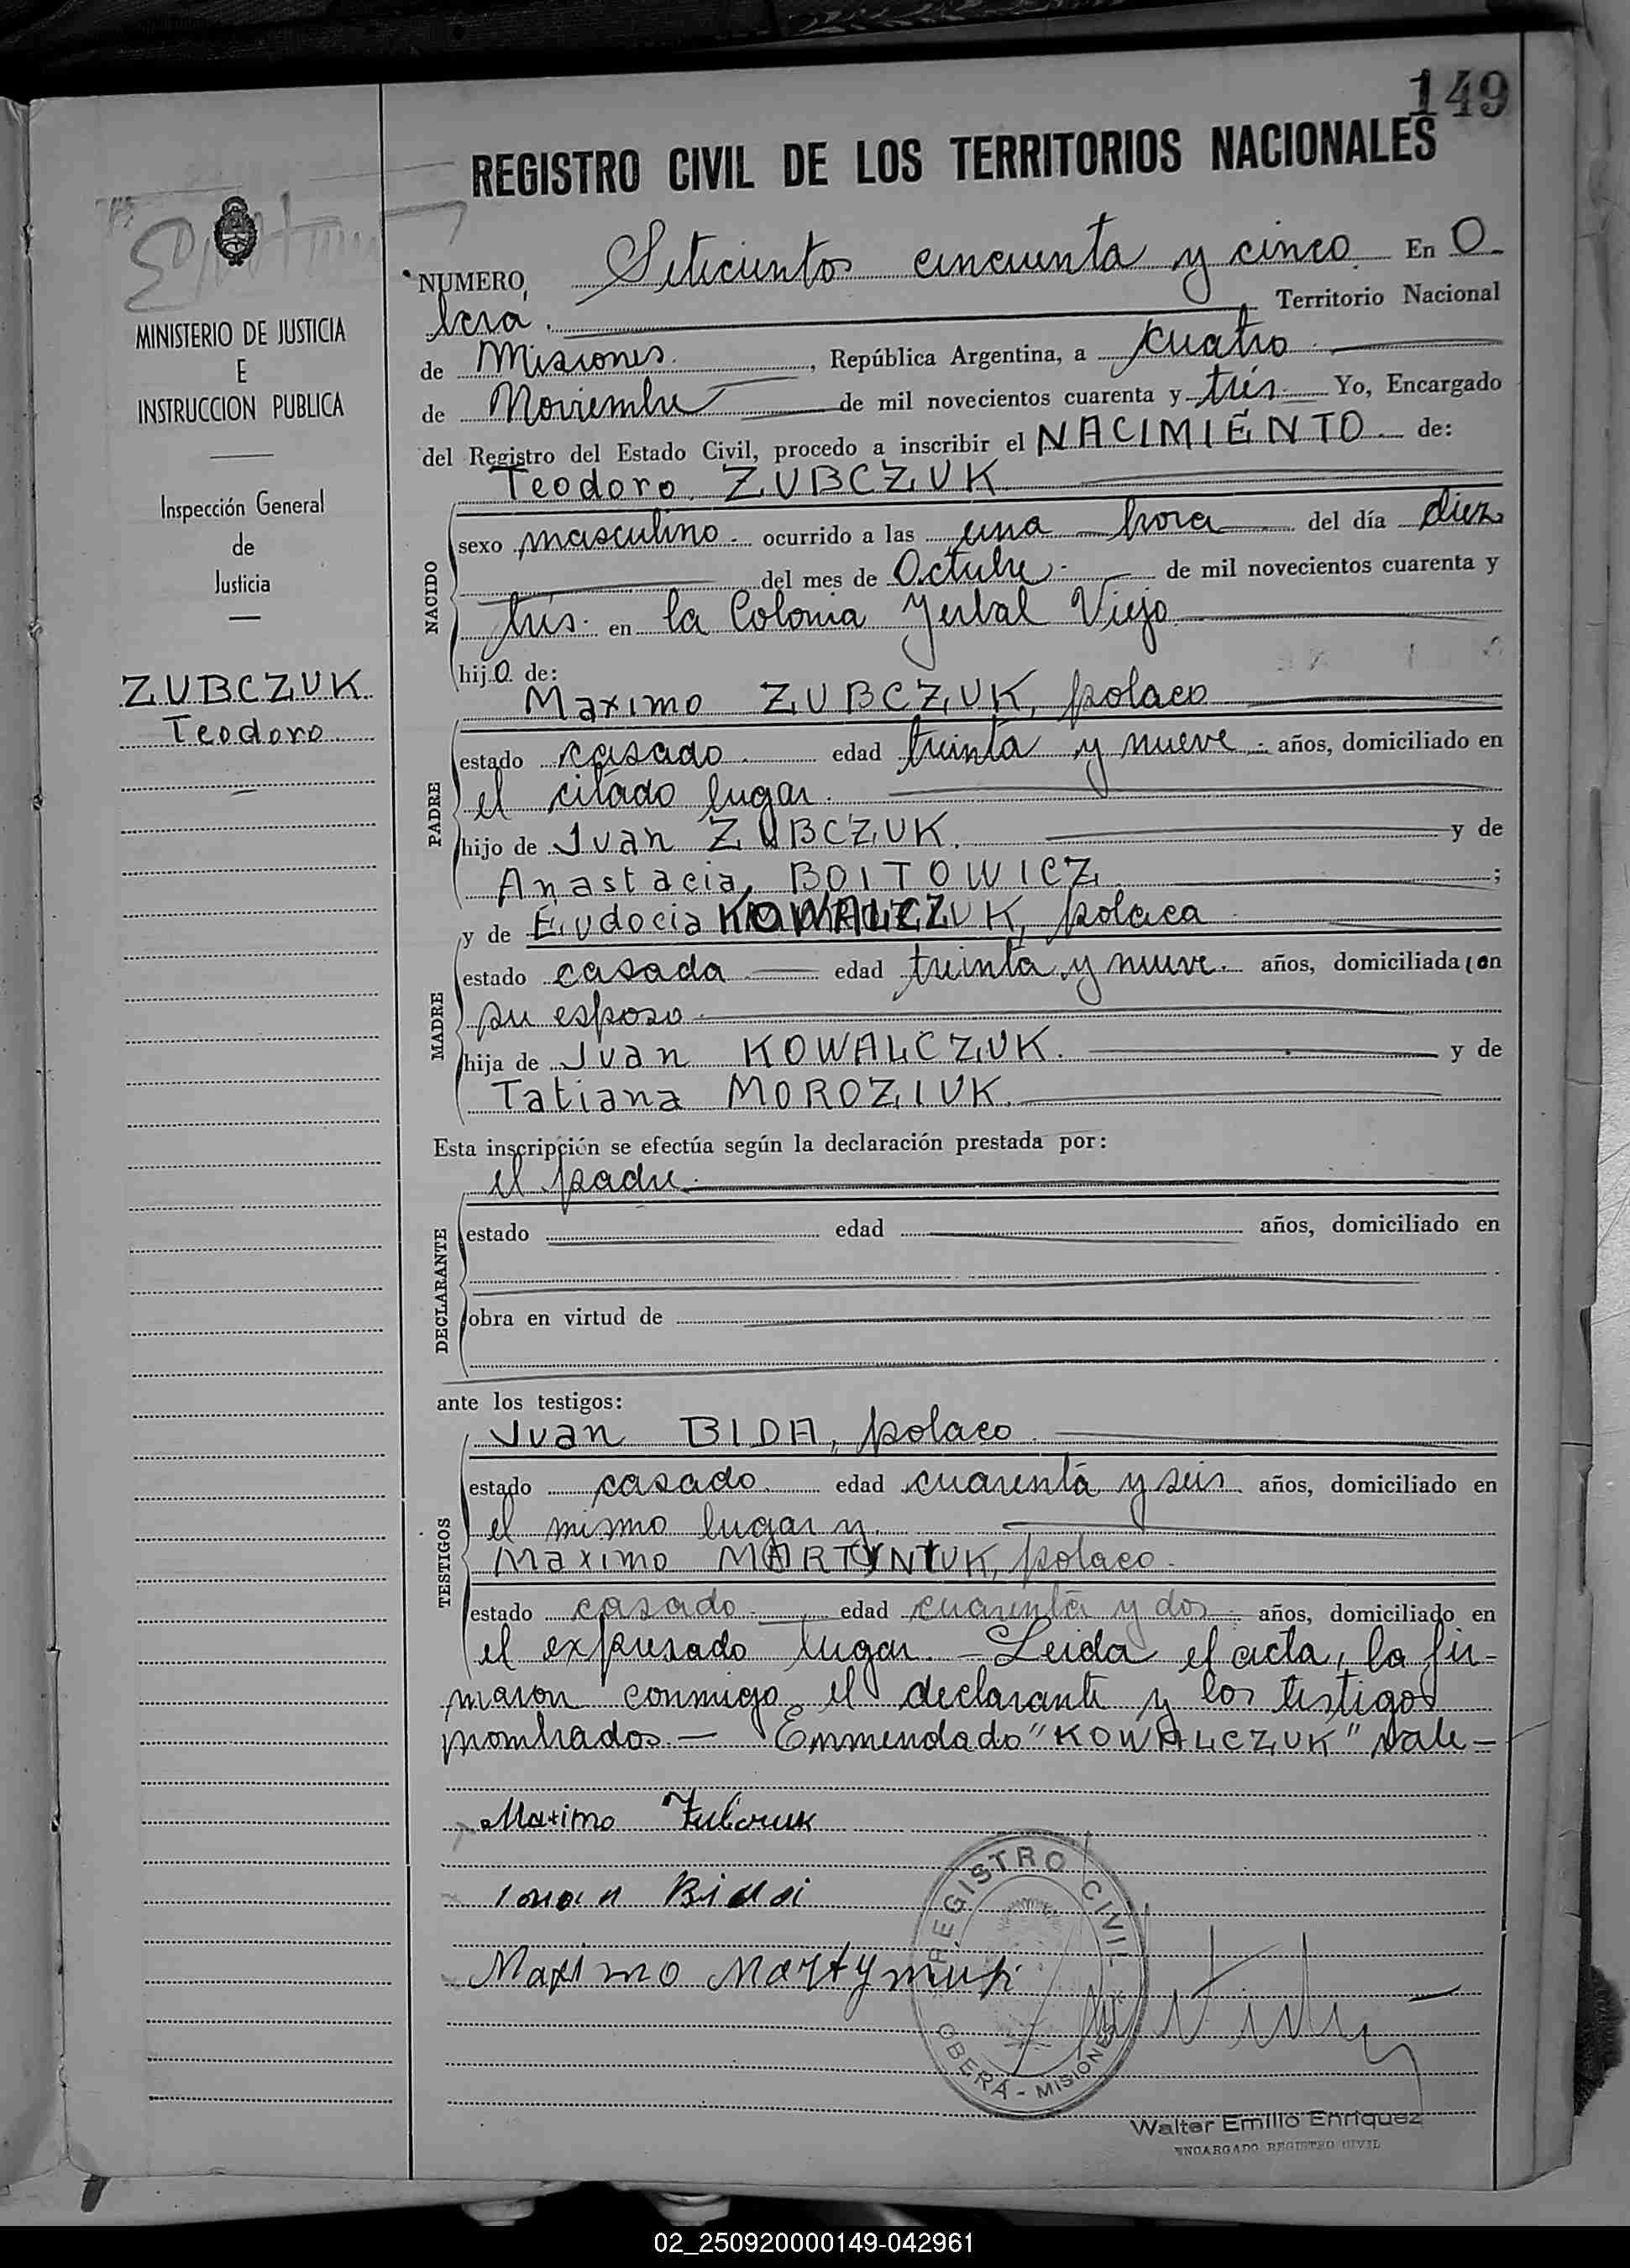 149
REGISTRO CIVIL DE LOS TERRITORIOS NACIONALES
MINISTERIO DE JUSTICIA
E
INSTRUCCION PUBLICA
Inspección General
de
Justicia
ZUBCZUK
Teodoro
NUMERO Seteciento cincuenta y cinco. En O-
berá. Territorio Nacional
de Misiones, República Argentina, a cuatro
de Noviembre de mil novecientos cuarenta y tres. Yo, Encargado
del Registro del Estado Civil, procedo a inscribir el NACIMIENTO de:
NACIDO
Teodoro ZUBCZUK
sexo masculino. ocurrido a las una hora del día diez
del mes de Octubre. de mil novecientos cuarenta y
tres. en la Colonia Yerbal Viejo
hijo de:
PADRE
Maximo ZUBCZUK, polaco
estado casado edad treinta y nueve años, domiciliado en
el citado lugar.
hijo de Juan ZUBCZUK. y de
Anastacia BOITOWICZ ;
y de Eudocia KOWALCZUK, polaca
MADRE
estado casada edad treinta y nueve. años, domiciliada con
su esposo
hija de Juan KOWALCZUK. y de
Tatiana MOROZIUK.
Esta inscripción se efectúa según la declaración prestada por:
DECLARANTE
el padre.
estado edad años, domiciliado en
obra en virtud de
ante los testigos:
TESTIGOS
Juan BIDA, polaco
estado casado. edad cuarenta y seis años, domiciliado en
el mismo lugar y
Maximo MARTYNIUK, polaco.
estado casado edad cuarenta y dos años, domiciliado en
el expresado lugar. - Leida el acta, la fir-
maron conmigo el declarante y los testigos
nombrados. - Enmendado "KOWALCZUK" vale -
Maximo Zubczuk
Maximo Martyniuk
REGISTRO CIVIL
OBERA - MISIONES
Walter Emilio Enriquez
ENCARGADO REGISTRO CIVIL
02_250920000149-042961